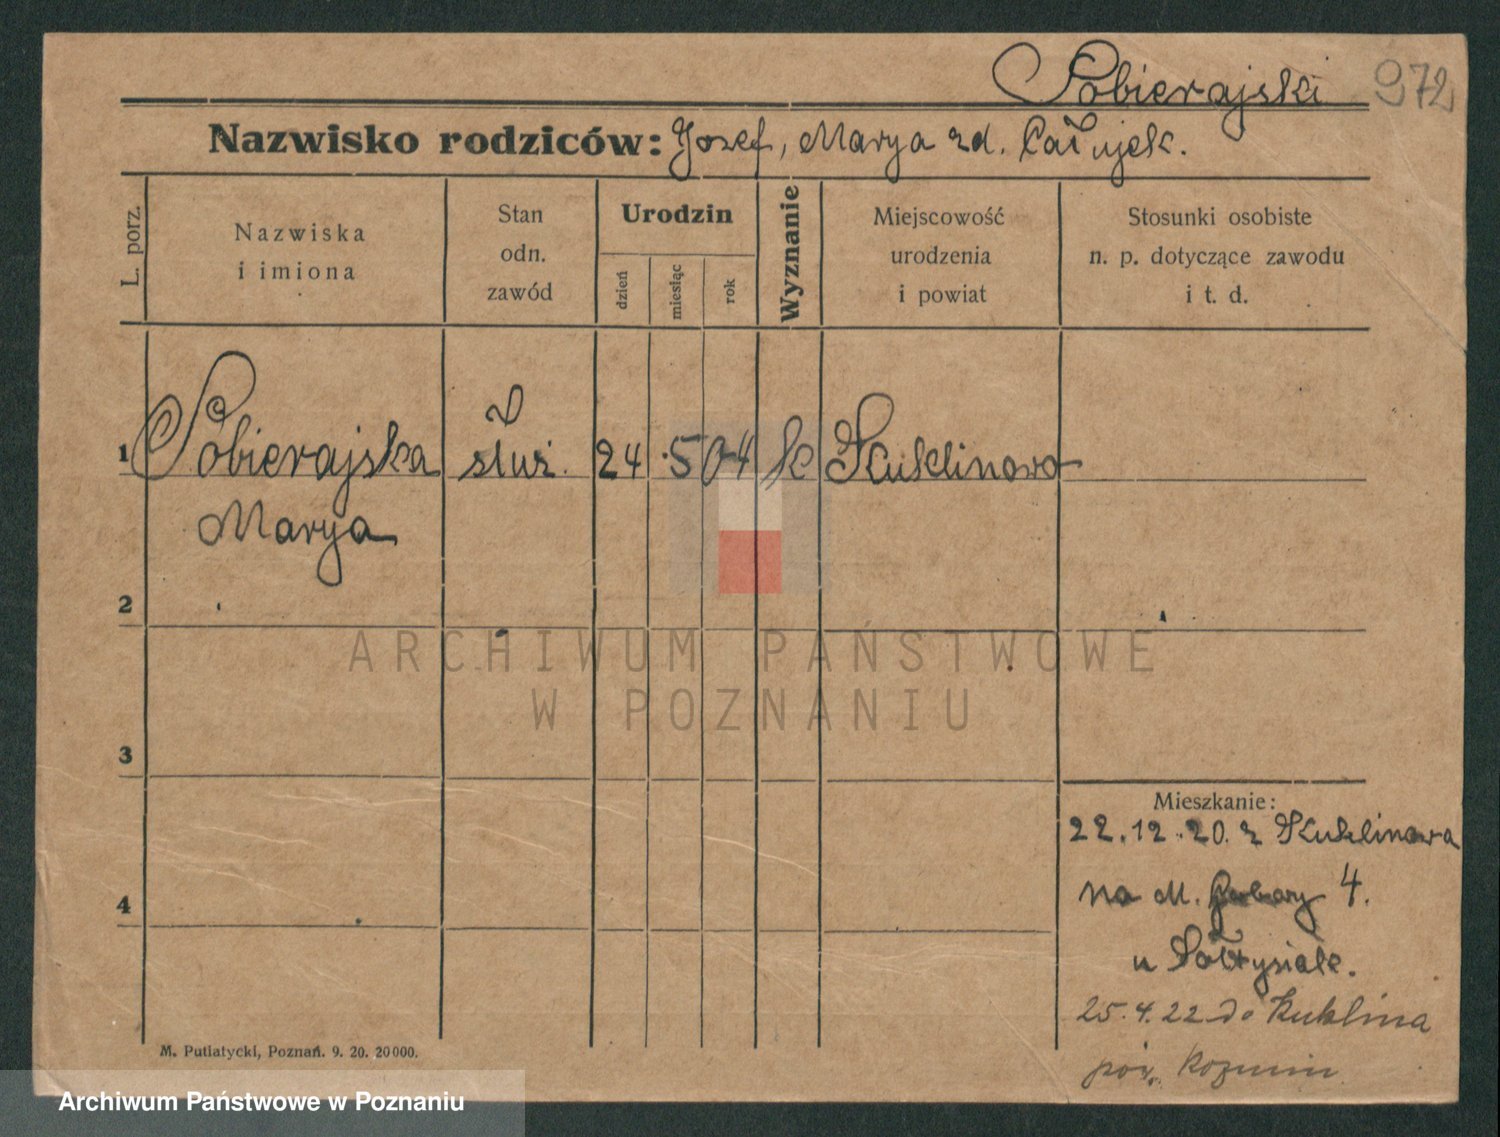 Sobierajski 972
Nazwisko rodziców: Jozef, Marya zd. Całujek.
L. porz.
Nazwiska
i imiona
Stan
odn.
zawód
Urodzin
dzień
miesiąc
rok
Wyznanie
Miejscowość
urodzenia
i powiat
Stosunki osobiste
n. p. dotyczące zawodu
i t. d.
1 Sobierajska służ. 24 5 04 k Kuklinowo
Marya
2
ARCHIWUM PAŃSTWOWE
W POZNANIU
3
Mieszkanie:
22.12.20. z Kuklinowa
na M. Garbary 4.
4
u Sołtysiak.
25.4.22 do Kuklina
pow. Kozmin
M. Putiatycki, Poznań. 9. 20. 20000.
Archiwum Państwowe w Poznaniu